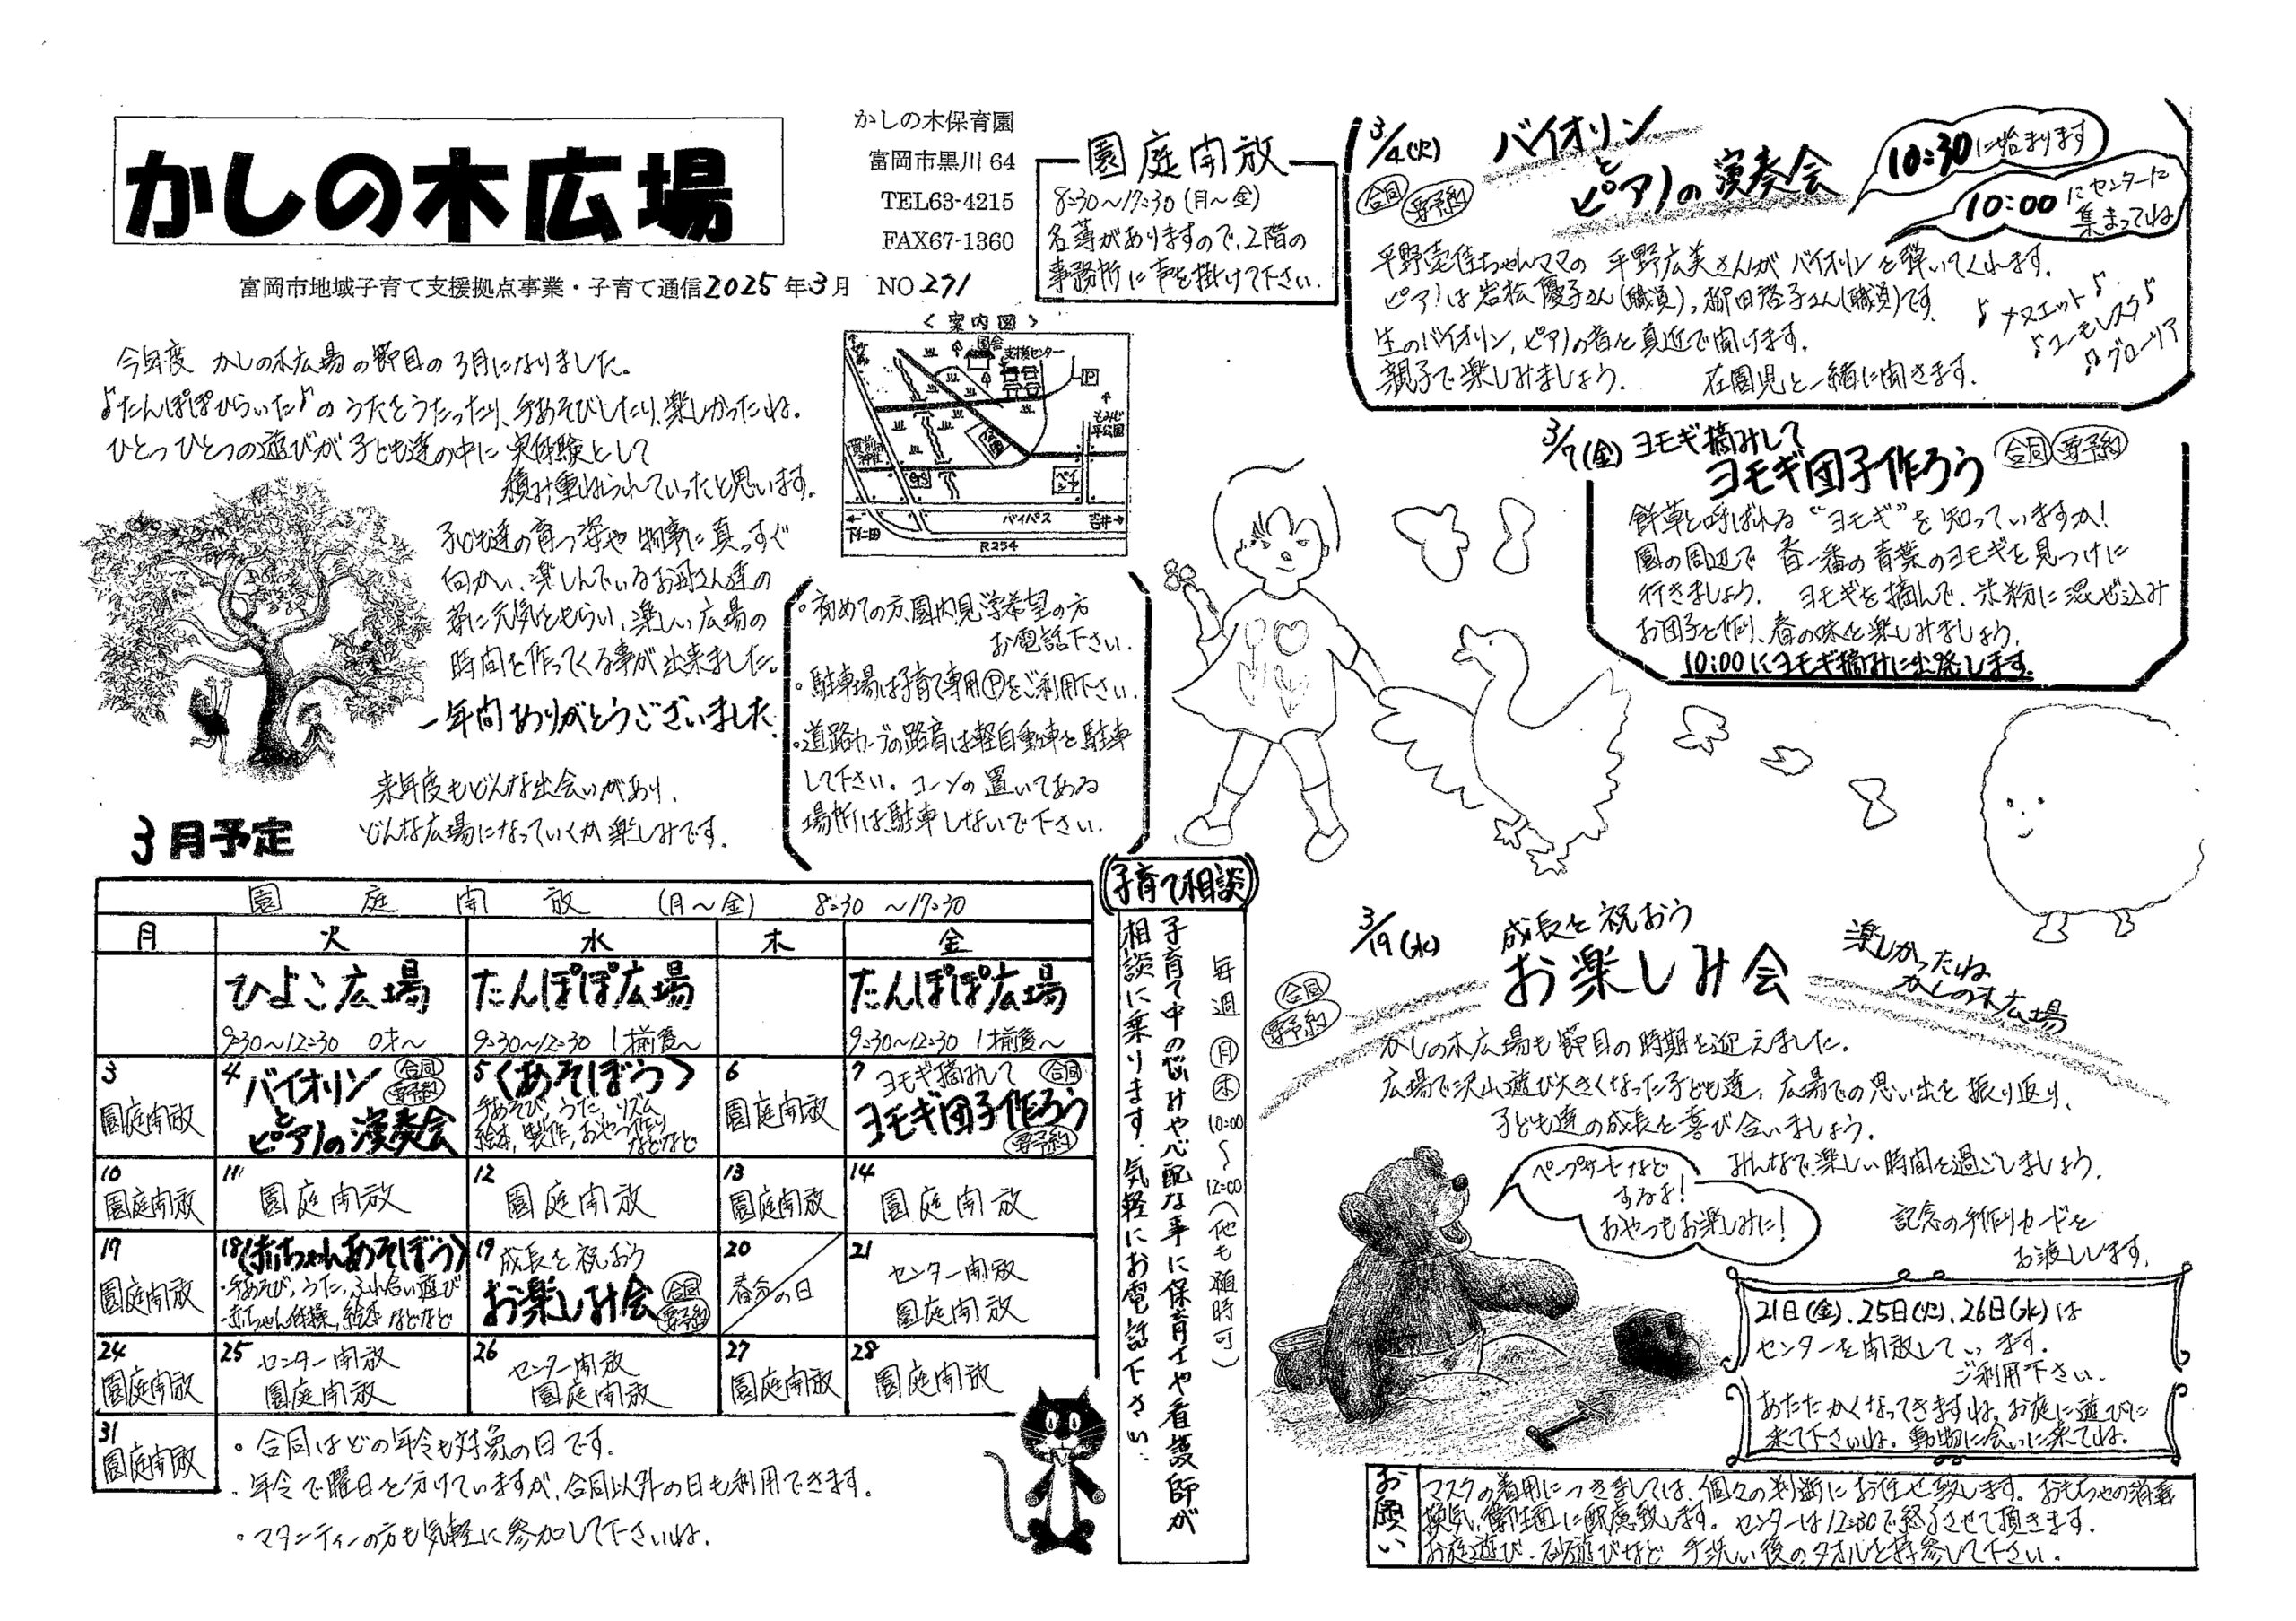 かしの木広場
富岡市地域子育て支援拠点事業・子育て通信2025年3月 NO271
かしの木保育園
富岡市黒川64
TEL63-4215
FAX67-1360
園庭開放
8:30〜17:30(月〜金)
名簿がありますので、2階の
事務所に声を掛けて下さい.
今年度 かしの木広場の節目の3月になりました。
♪たんぽぽひらいた♪のうたをうたったり、手あそびしたり、楽しかったね。
ひとつひとつの遊びが子ども達の中に実体験として
積み重ねられていったと思います。
子ども達の育つ姿や物事に真っすぐ
向かい、楽しんでいるお母さん達の
姿に元気をもらい、楽しい広場の
時間を作ってくる事が出来ました。
一年間ありがとうございました.
来年度もどんな出会いがあり、
どんな広場になっていくか楽しみです.
<案内図>
園舎
支援センター
P
もみじ平公園
バイパス
吉井→
←下仁田
R254
・初めての方、園内見学希望の方
お電話下さい.
・駐車場は子育て専用Ⓟをご利用下さい.
・道路カーブの路肩は軽自動車を駐車
して下さい。コーンの置いてある
場所は駐車しないで下さい.
3/4(火) バイオリンとピアノの演奏会
合同 要予約
10:30に始まります
10:00にセンターに
集まってね
平野壱佳ちゃんママの 平野広美さんが バイオリンを弾いてくれます.
ピアノは岩松優子さん(職員),柳田啓子さん(職員)です.
生のバイオリン,ピアノの音を真近で聞けます.
親子で楽しみましょう. 在園児と一緒に聞きます.
♪メヌエット♪
♪ユーモレスク♪
♫グローリア
3/7(金) ヨモギ摘みして
ヨモギ団子作ろう 合同 要予約
餅草と呼ばれる“ヨモギ”を知っていますか!
園の周辺で 春一番の青葉のヨモギを見つけに
行きましょう. ヨモギを摘んで、米粉に混ぜ込み
お団子を作り、春の味を楽しみましょう.
10:00にヨモギ摘みに出発します.
3/19(水) 成長を祝おう
お楽しみ会
合同 要予約
楽しかったね
かしの木広場
かしの木広場も節目の時期を迎えました.
広場で沢山遊び大きくなった子ども達、広場での思い出を振り返り、
子ども達の成長を喜び合いましょう.
みんなで楽しい時間を過ごしましょう.
ペープサートなど
するよ!
おやつもお楽しみに!
記念の手作りカードを
お渡しします.
21日(金)、25日(火)、26日(水)は
センターを開放しています.
ご利用下さい.
あたたかくなってきますね。お庭に遊びに
来て下さいね。動物に会いに来てね.
お願い
マスクの着用につきましては、個々の判断にお任せ致します。おもちゃの消毒
換気、衛生面に配慮致します。センターは12:30で終了させて頂きます.
お庭遊び、砂遊びなど 手洗い後のタオルを持参して下さい.
子育て相談
毎週 月 木 10:00〜12:00(他も随時可)
子育て中の悩みや心配な事に保育士や看護師が
相談に乗ります.気軽にお電話下さい.
3月予定
園庭開放 (月〜金) 8:30〜17:30
月 火 水 木 金
ひよこ広場 9:30〜12:30 0才〜
たんぽぽ広場 9:30〜12:30 1才前後〜
たんぽぽ広場 9:30〜12:30 1才前後〜
3 園庭開放
4 バイオリンとピアノの演奏会 合同 要予約
5 〈あそぼう〉
手あそび、うた、リズム
絵本、製作、おやつ作り
などなど
6 園庭開放
7 ヨモギ摘みして 合同
ヨモギ団子作ろう 要予約
10 園庭開放
11 園庭開放
12 園庭開放
13 園庭開放
14 園庭開放
17 園庭開放
18 〈赤ちゃんあそぼう〉
・手あそび、うた、ふれ合い遊び
・赤ちゃん体操、絵本 などなど
19 成長を祝おう
お楽しみ会 合同 要予約
20 春分の日
21 センター開放
園庭開放
24 園庭開放
25 センター開放
園庭開放
26 センター開放
園庭開放
27 園庭開放
28 園庭開放
31 園庭開放
・合同はどの年令も対象の日です.
・年令で曜日を分けていますが、合同以外の日も利用できます.
・マタニティーの方も気軽に参加して下さいね.